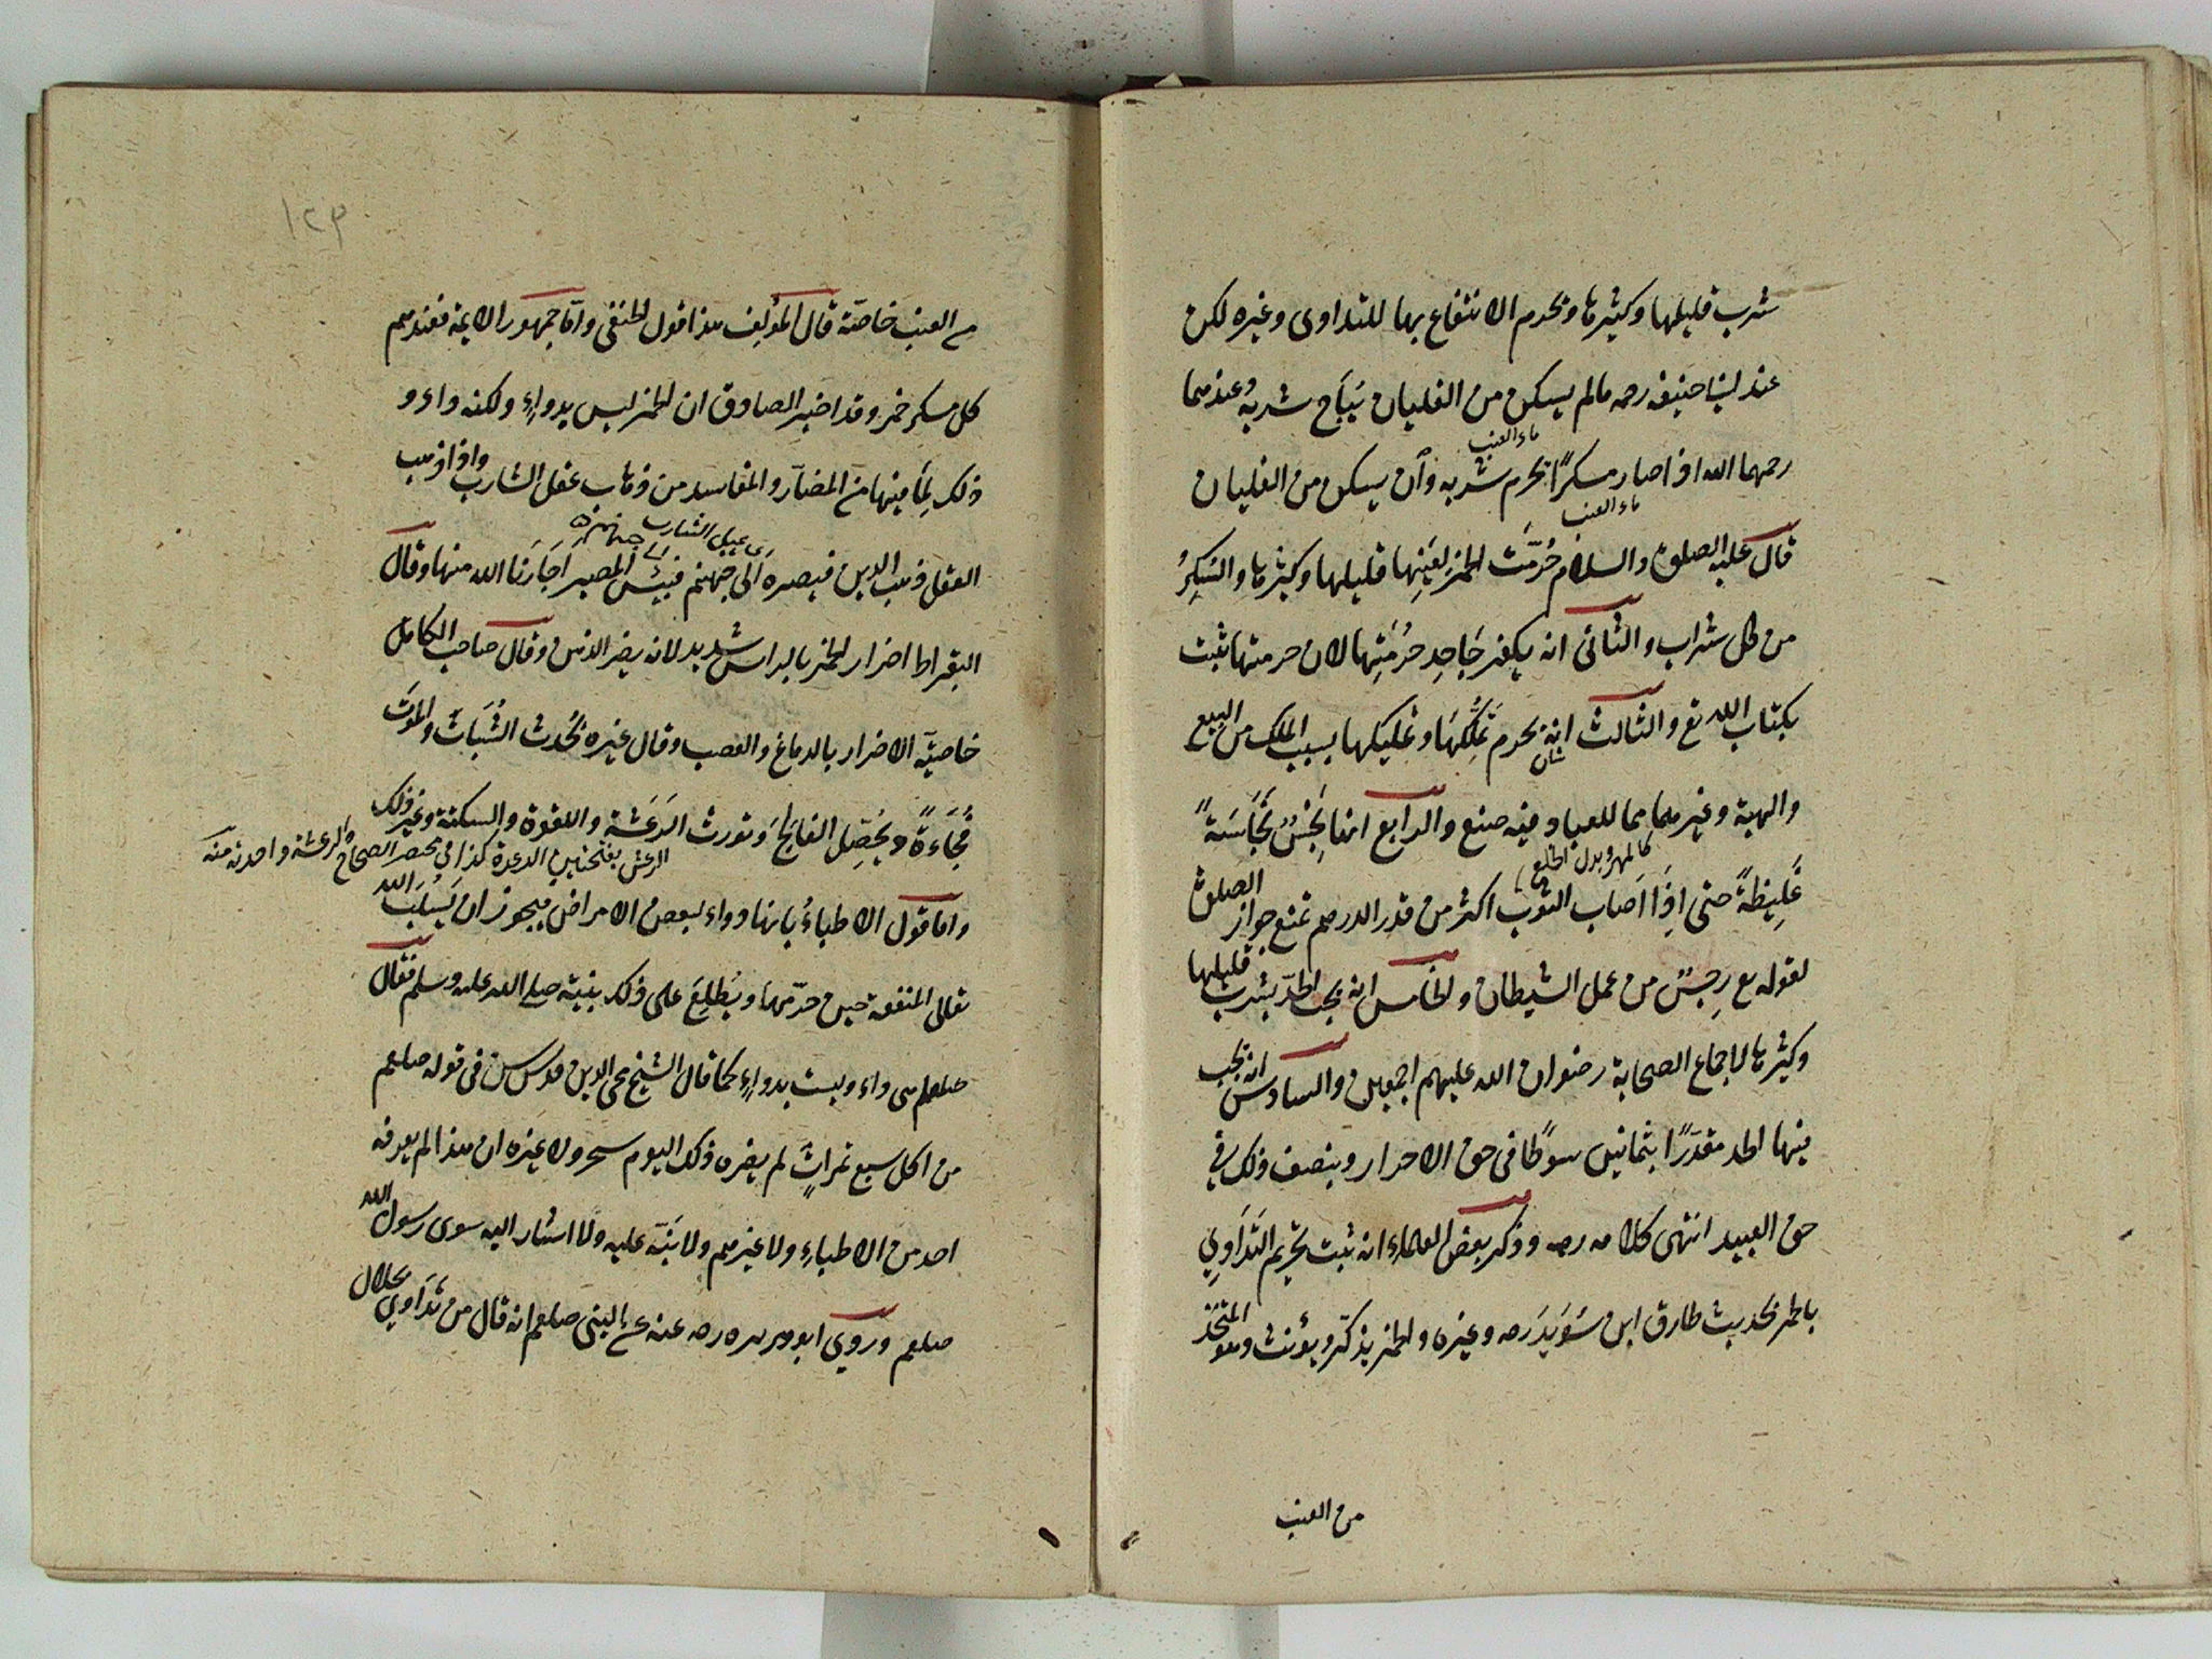 شرب قليلها وكثيرها ويحرم الانتفاع بها للتداوى وغيره لكن
عند ابى حنيفه رحمه مالم يسكن من الغليان يُبَاح شربه وعندهما
ماء العنب
رحمهما الله اذا صار مسكرًا يحرم شربه وان يسكن من الغليان
ماء العنب
قال عليه الصلوة والسلام حُرّمَت الخمر لِعَينِها قليلها وكثيرها والسَكرُ
من كل شراب والثانى انه يكفر جَاحِد حُرْمَتِها لان حرمتها ثبت
بكتاب الله تع والثالث انه يحرم تَمَلُّكهَا وتمليكها بسبب الملك من البيع
شان
والهبة وغيرهما مما للعباد فيه صنع والرابع انها نَجِسٌ نَجَاسَةً
كالمهر وبدل الخلع
غَلِيظةً حتى اِذَا اَصاب الثوب اكثر من قدر الدرهم تمنع جواز الصلوة
لقوله تع رِجسٌ من عمل الشيطان والخامس انه يجب الحدّ بشرب قليلها
وكثيرها لاجماع الصحابة رضوان الله عليهم اجمعين والسادس انه يجب
فيها الحد مقدَرًا بثمانين سوطًا فى حق الاحرار وينصف ذلك فى
حق العبيد انتهى كلامه رحه وذكر بعض العلماء انه ثبت تحريم التدَاوِي
بالخمر بحديث طارق ابن سُوَيدَ رضه وغيره والخمر يذكّر ويؤنث وهو المتخذ
من العنب
١٢٣
من العنب خاصّة قال المؤلف هذا قول الحنفى وامّا جمهور الايمة فعندهم
كل مسكر خمر وقد اخبر الصادق ان الخمر ليس بدواءٍ ولكنه داء و
ذلك لِمَا فيها من المضآر والمفاسد من ذهاب عقل الشارب واذا ذهب
العقل ذهب الدين فيصره الى جهنم فبئس المصير اَجَارَنا الله منها وقال
البقراط اضرار الخمر بالراس شديد لانه يضر الذهن وقال صاحب الكامل
خاصيّه الاضرار بالدماغ والعصب وقال غيره يُحْدث السُّبَاتَ والموتَ
فُجَاءةً ويُحَصِّل الفالجَ وتورث الرَعَشَة واللقوة والسكتة وغير ذلك
الرعش بفتحتين الرعدة كذا في مختصر الصحاح
واما قول الاطباءُ بانها دواء لبعض الامراض فيجوز ان يَسْلبَ الله
تعالى المنفعة حين حرّمها ويُطلِعَ على ذلك نبيّه صلى الله عليه وسلم فقال
صلعم هى داء وليست بدواءٍ كما قال الشيخ محى الدين قدس سره فى قوله صلعم
من اكل سبع تمراتٍ لم يضره ذلك اليوم سحر ولا غيره ان هذا لم يعرفه
احد من الاطباء ولا غيرهم ولا نَبّه عليه ولا اشار اليه سوى رسول الله
صلعم وروي ابو هريره رضه عنه عن النبى صلعم انه قال من تدَاوي بحلال